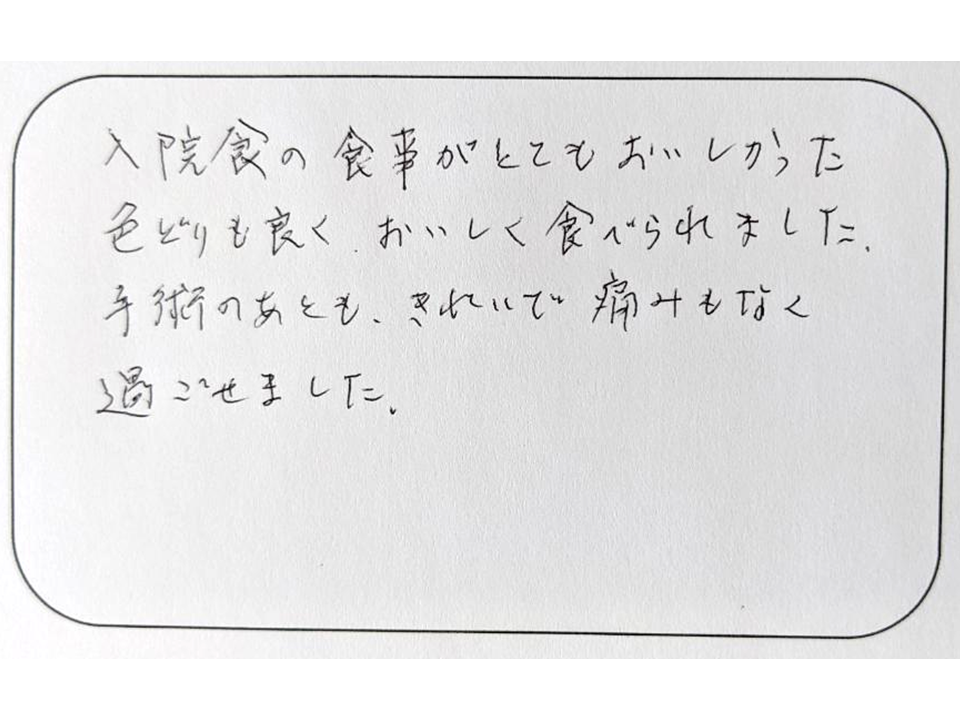 入院食の食事がとてもおいしかった
色どりも良く、おいしく食べられました、
手術のあとも、きれいで痛みもなく
過ごせました、